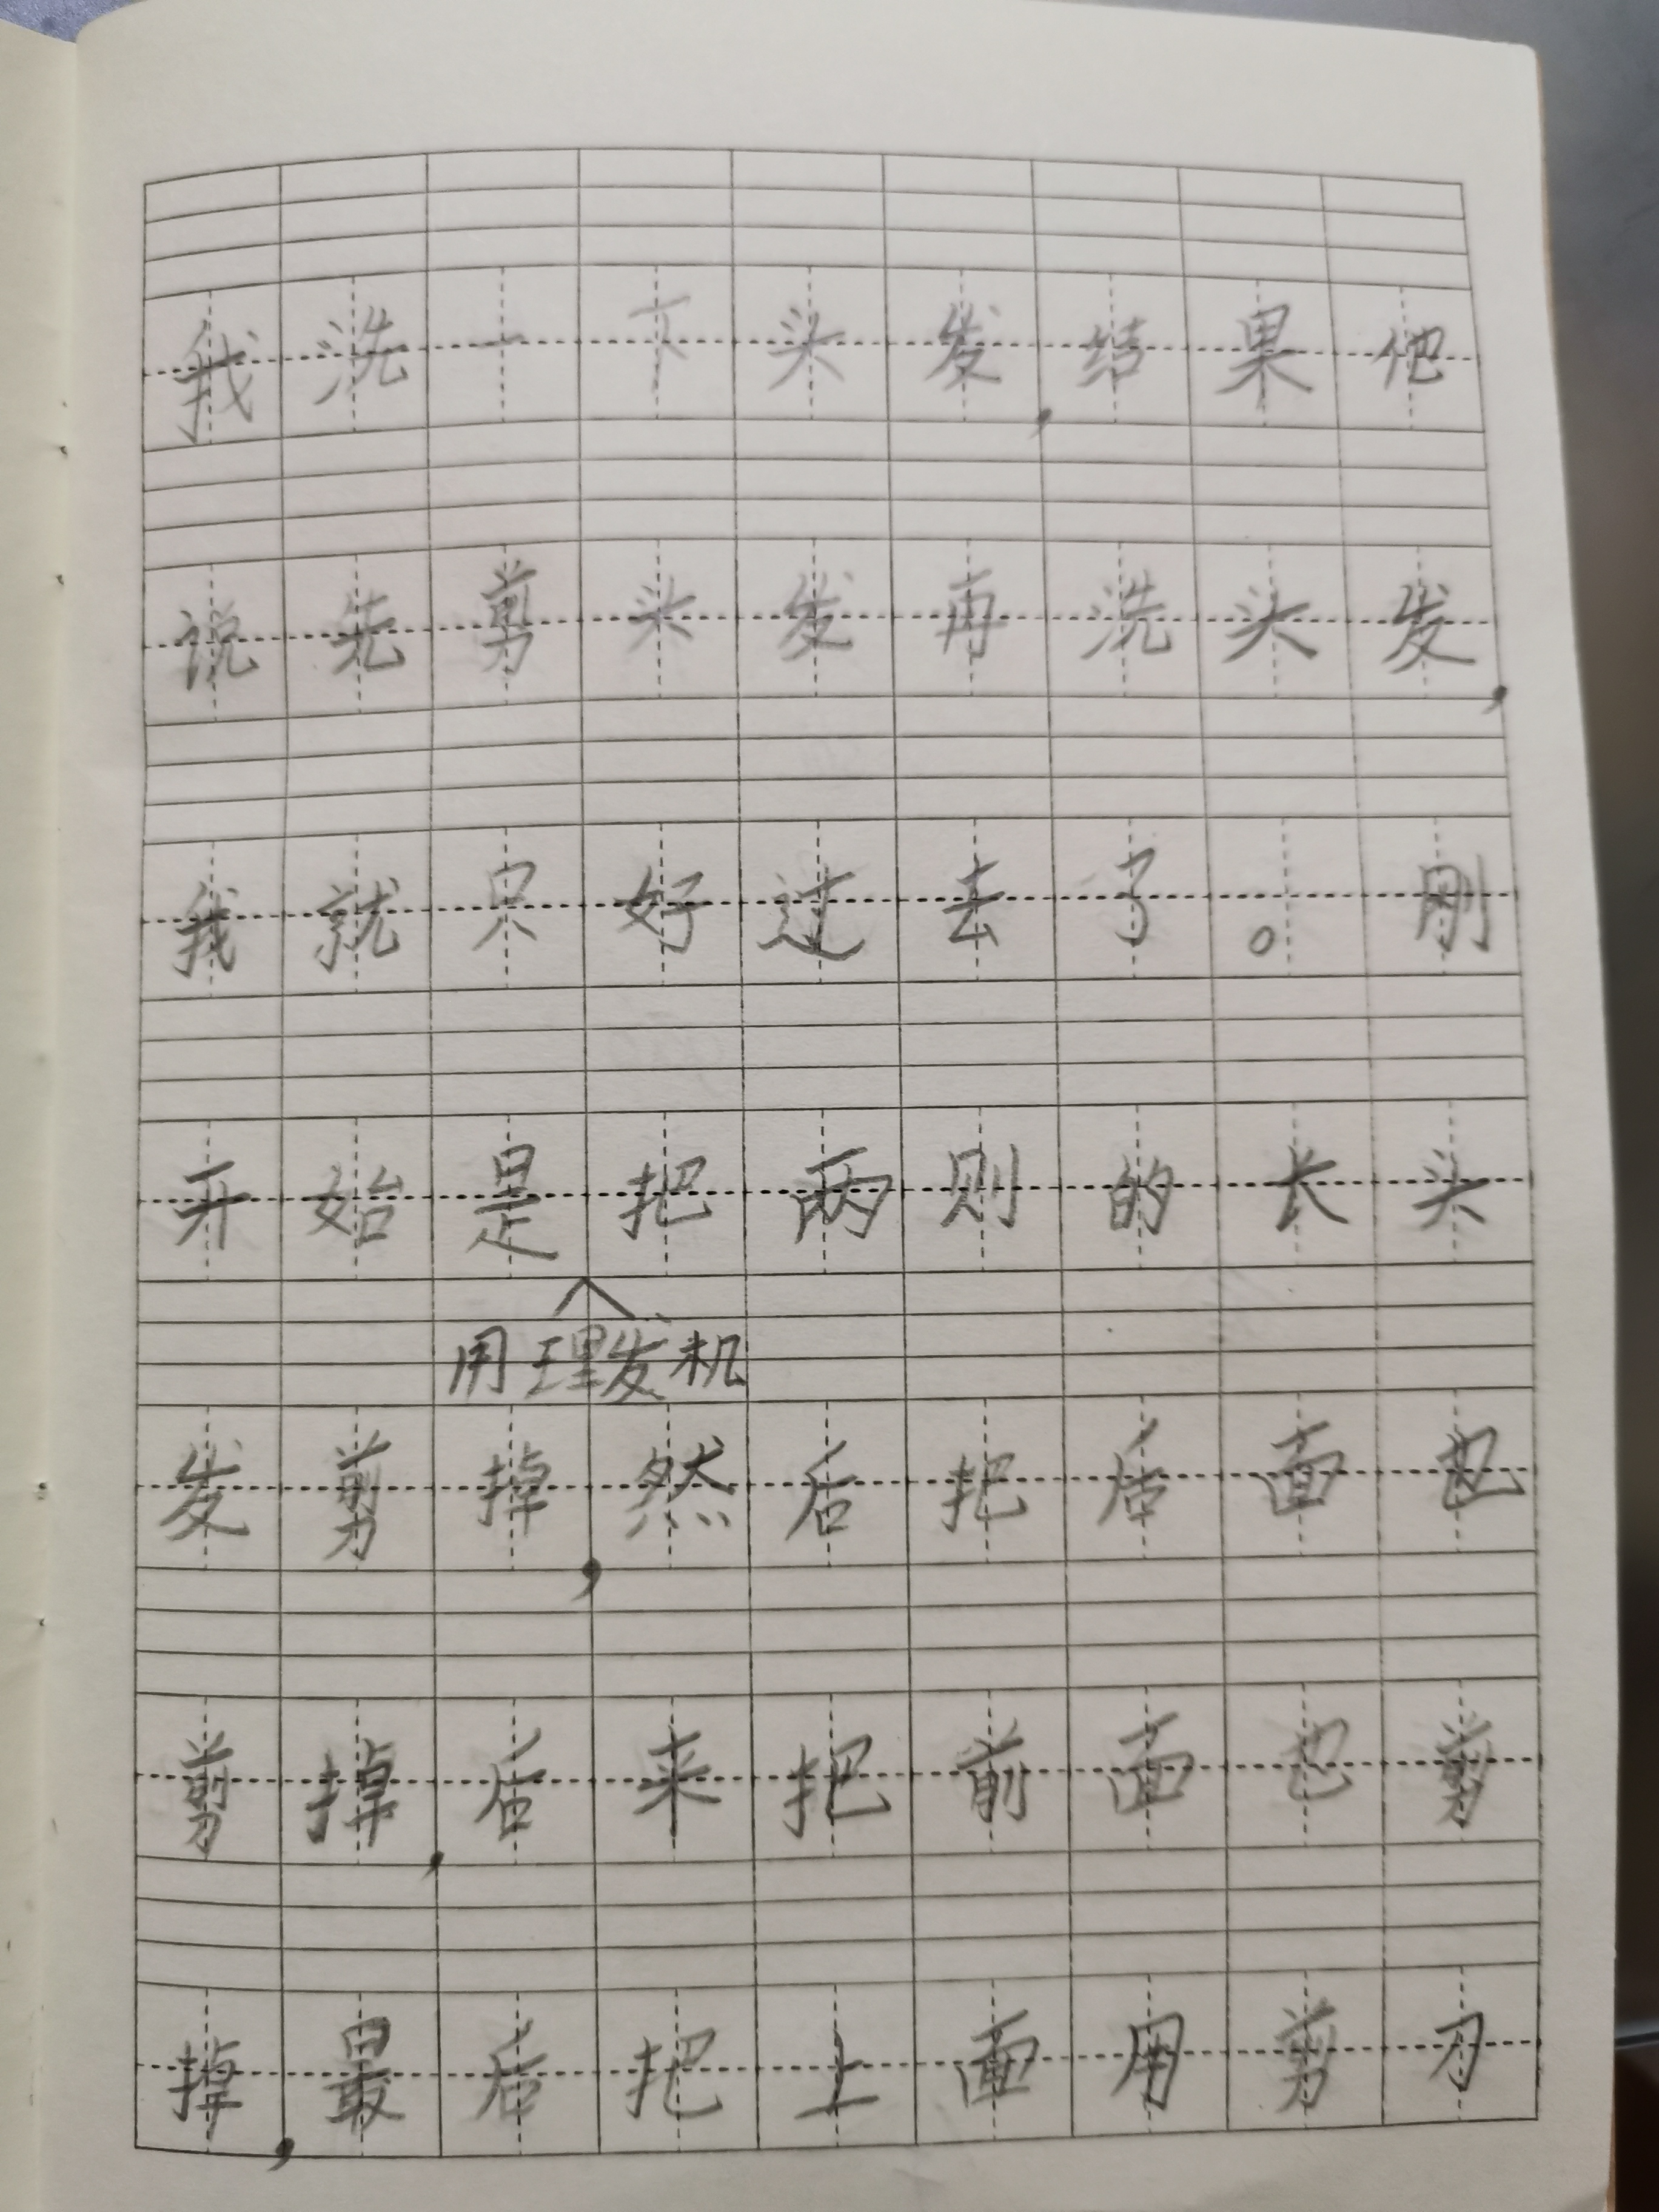 我洗一下头发,结果他
说先剪头发再洗头发,
我就只好过去了。刚
开始是把两则的长头
用理发机
发剪掉,然后把后面也
剪掉,后来把前面也剪
掉,最后把上面用剪刀